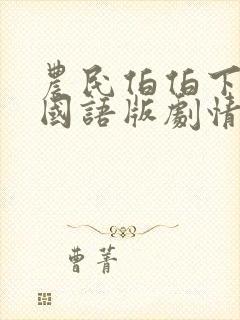 農民伯伯下
國語版劇情
曹菁